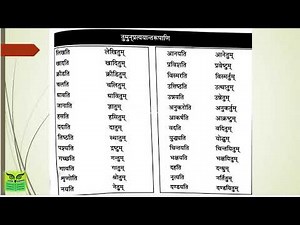 तुमुन्प्रत्ययान्तरूपाणि
लिखति लेखितुम् आनयति आनेतुम्
खादति खादितुम् प्रविशति प्रवेष्टुम्
क्रीडति क्रीडितुम् विस्मरति विस्मर्तुम्
चलति चलितुम् उत्तिष्ठति उत्थातुम्
धावति धावितुम् उन्नयति उन्नेतुम्
जानाति ज्ञातुम् अनुकरोति अनुकर्तुम्
हसति हसितुम् आकर्षति आक्रष्टुम्
यच्छति दातुम् वदति वदितुम्
तिष्ठति स्थातुम् युद्ध्यति योद्धुम्
पश्यति द्रष्टुम् चिन्तयति चिन्तयितुम्
गच्छति गन्तुम् भक्षयति भक्षयितुम्
गायति गातुम् दहति दग्धुम्
शृणोति श्रोतुम् नृत्यति नर्तितुम्
नयति नेतुम् दण्डयति दण्डयितुम्